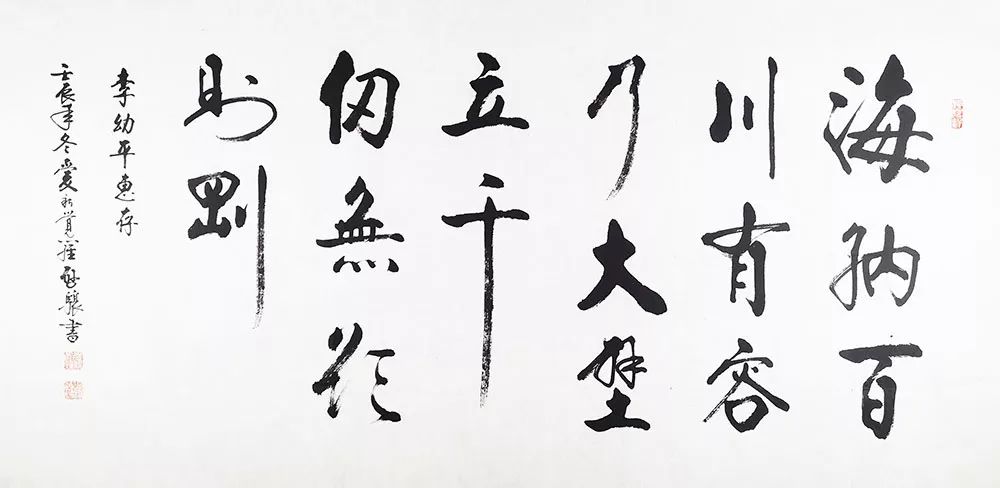 海納百
川有容
乃大壁
立千
仞無欲
則剛
李幼平惠存
壬辰年冬愛新覺羅啟驤書